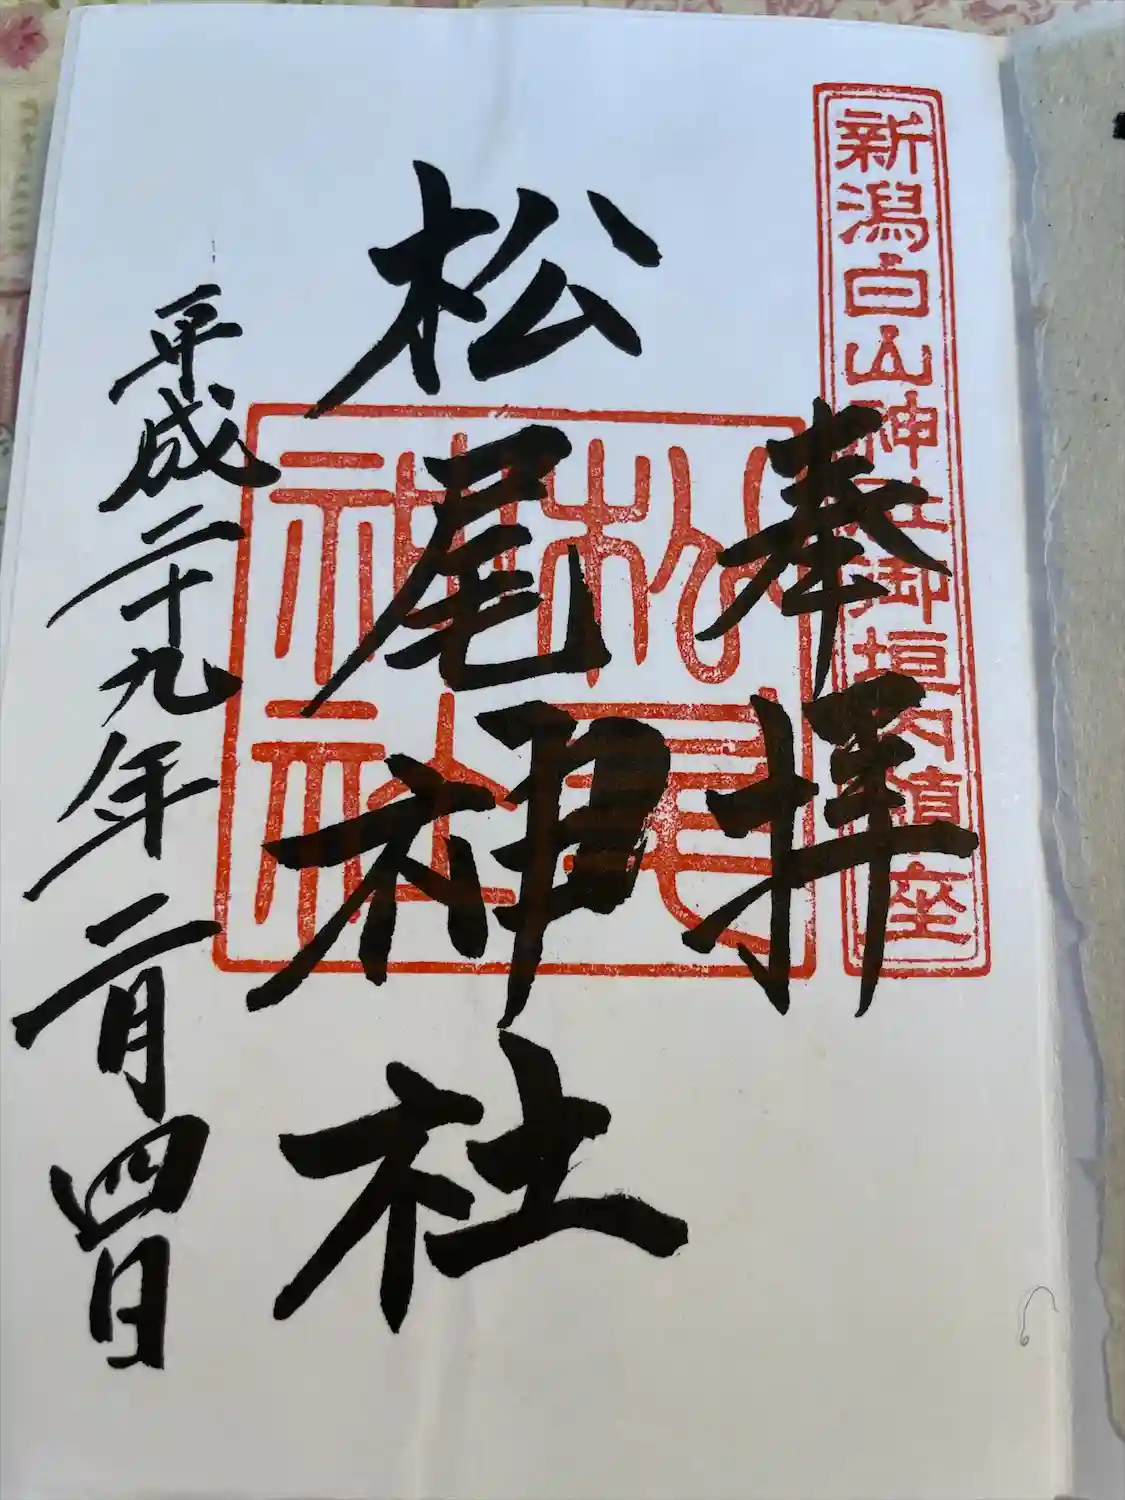 新潟白山神社御垣内鎮座
奉拝
松尾神社
松尾
神社
平成二十九年二月四日